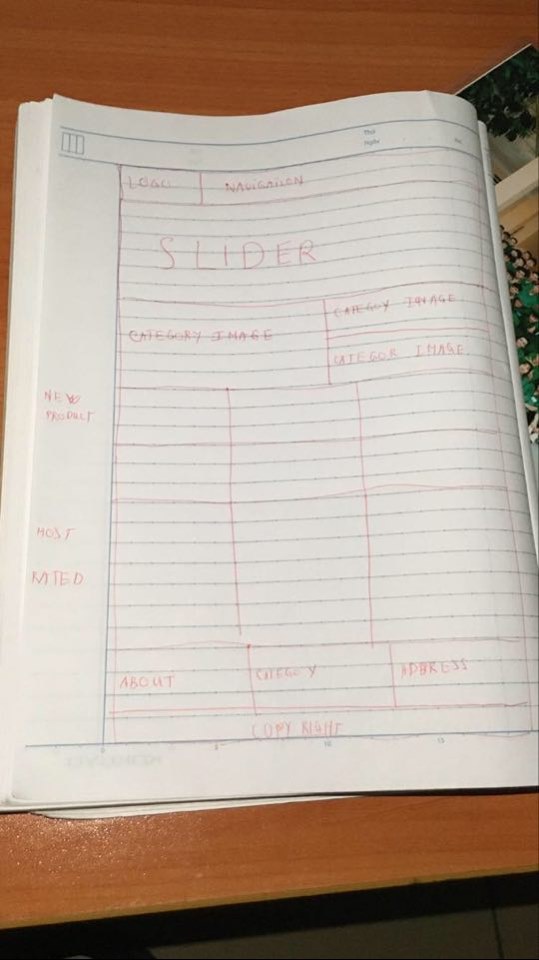 Thứ
Ngày
No.
LOGO NAVIGATION
SLIDER
CATEGORY IMAGE
CATEGOY IMAGE
CATEGOR IMAGE
NEW
PRODUCT
MOST
RATED
ABOUT
CATEGOY
ADDRESS
COPY RIGHT